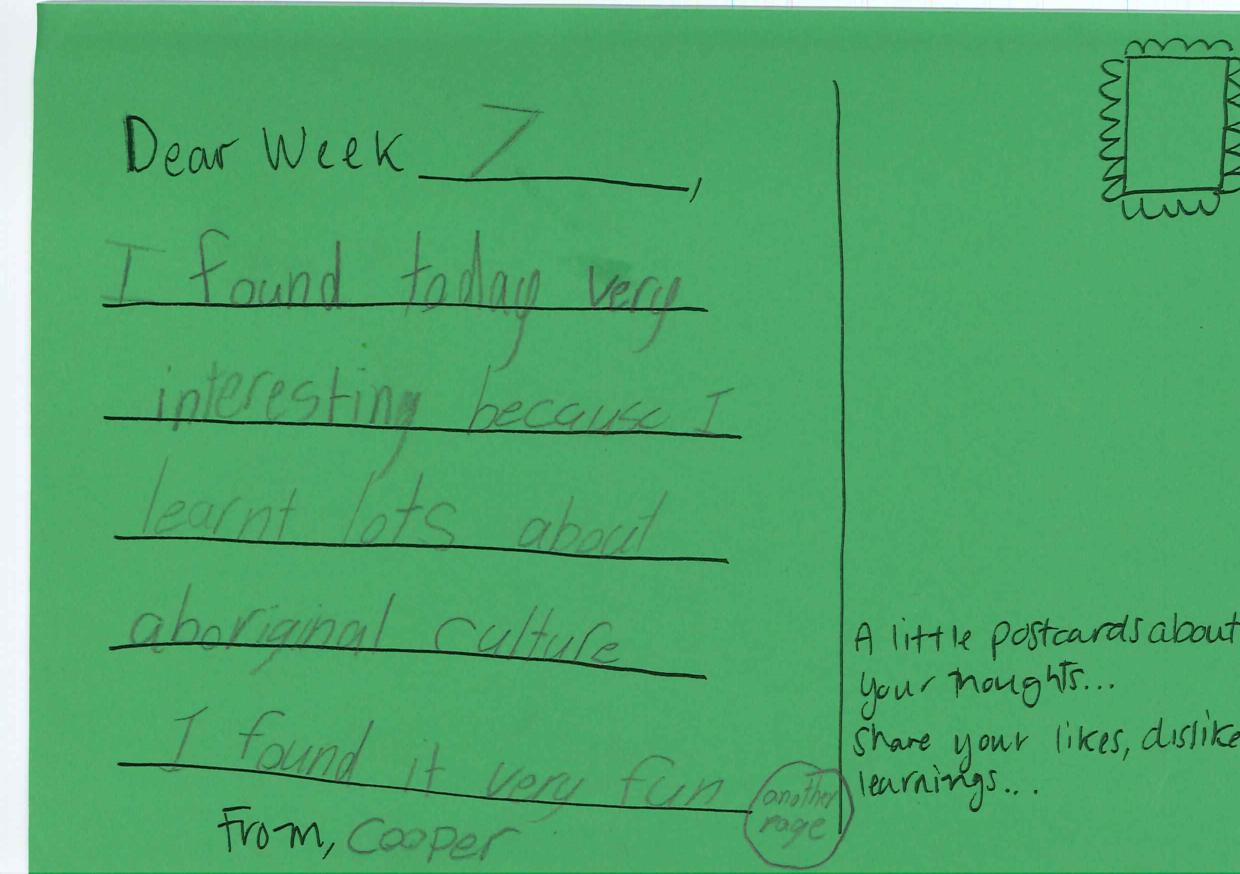 Dear Week 7,
I found today very
interesting because I
learnt lots about
aboriginal culture
I found it very fun
another
page
From, Cooper
A little postcards about
your thoughts...
Share your likes, dislike
learnings...